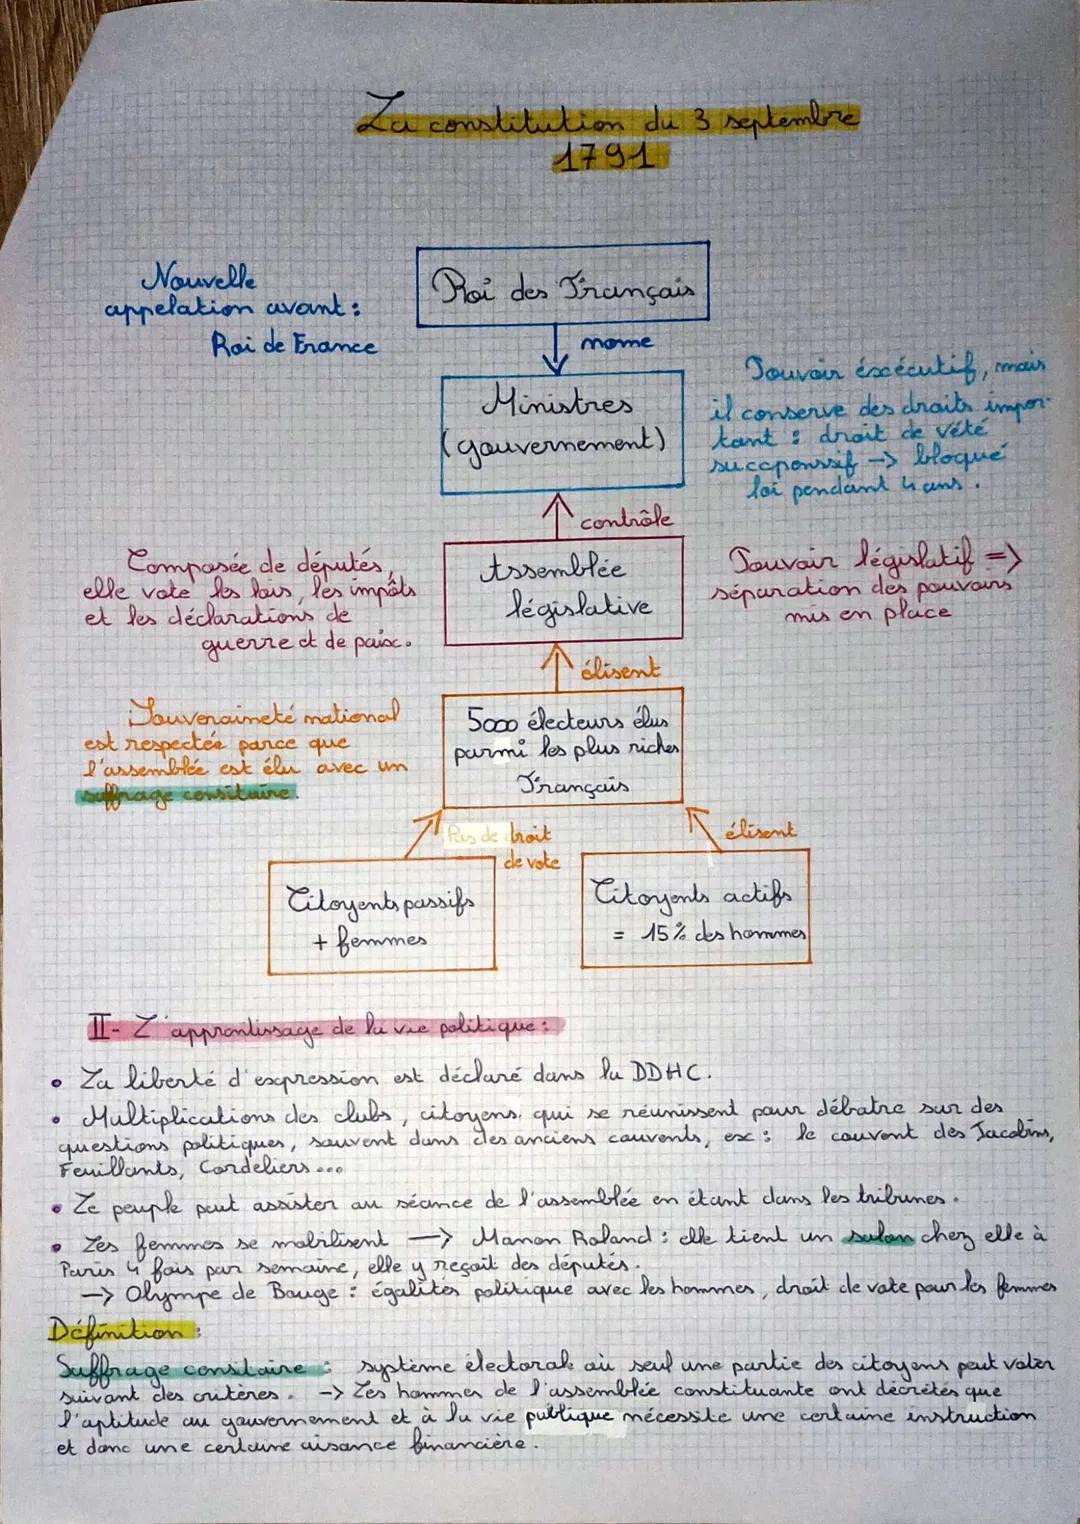 La constitution du 3 septembre
1791
Nouvelle
appelation avant :
Roi de France
Roi des Français
nome
Ministres
(gouvernement)
Pouvoir éxécutif, mais
il conserve des droits impor-
tant : droit de vété
succponssif -> bloqué
loi pendant 4 ans.
contrôle
Composée de députés,
elle vote les lois, les impôts
et les déclarations de
guerre et de paix.
Assemblée
législative
Pouvoir législatif =>
séparation des pouvoirs
mis en place
élisent
Souveraineté national
est respectée parce que
l'assemblée est élu avec un
suffrage consitaire.
5000 électeurs élus
parmi les plus riches
Français
Pas de droit
de vote
élisent
Citoyents passifs
+ femmes
Citoyents actifs
= 15% des hommes
II- L'apprentissage de la vie politique :
• La liberté d'expression est déclaré dans la DDHC.
• Multiplications des clubs, citoyens qui se réunissent pour débatre sur des
questions politiques, souvent dans des anciens couvents, ex : le couvent des Jacobins,
Feuillants, Cordeliers...
• Le peuple peut assister au séance de l'assemblée en étant dans les tribunes.
• Les femmes se mobilisent -> Manon Roland : elle tient un salon chez elle à
Paris 4 fois par semaine, elle y reçoit des députés.
-> Olympe de Bouge : égalités politique avec les hommes, droit de vote pour les femmes
Définition :
Suffrage consitaire : système électorale où seul une partie des citoyens peut voter
suivant des critères. -> Les hommes de l'assemblée constituante ont décrétés que
l'aptitude au gouvernement et à la vie publique nécessite une certaine instruction
et donc une certaine aisance financière.